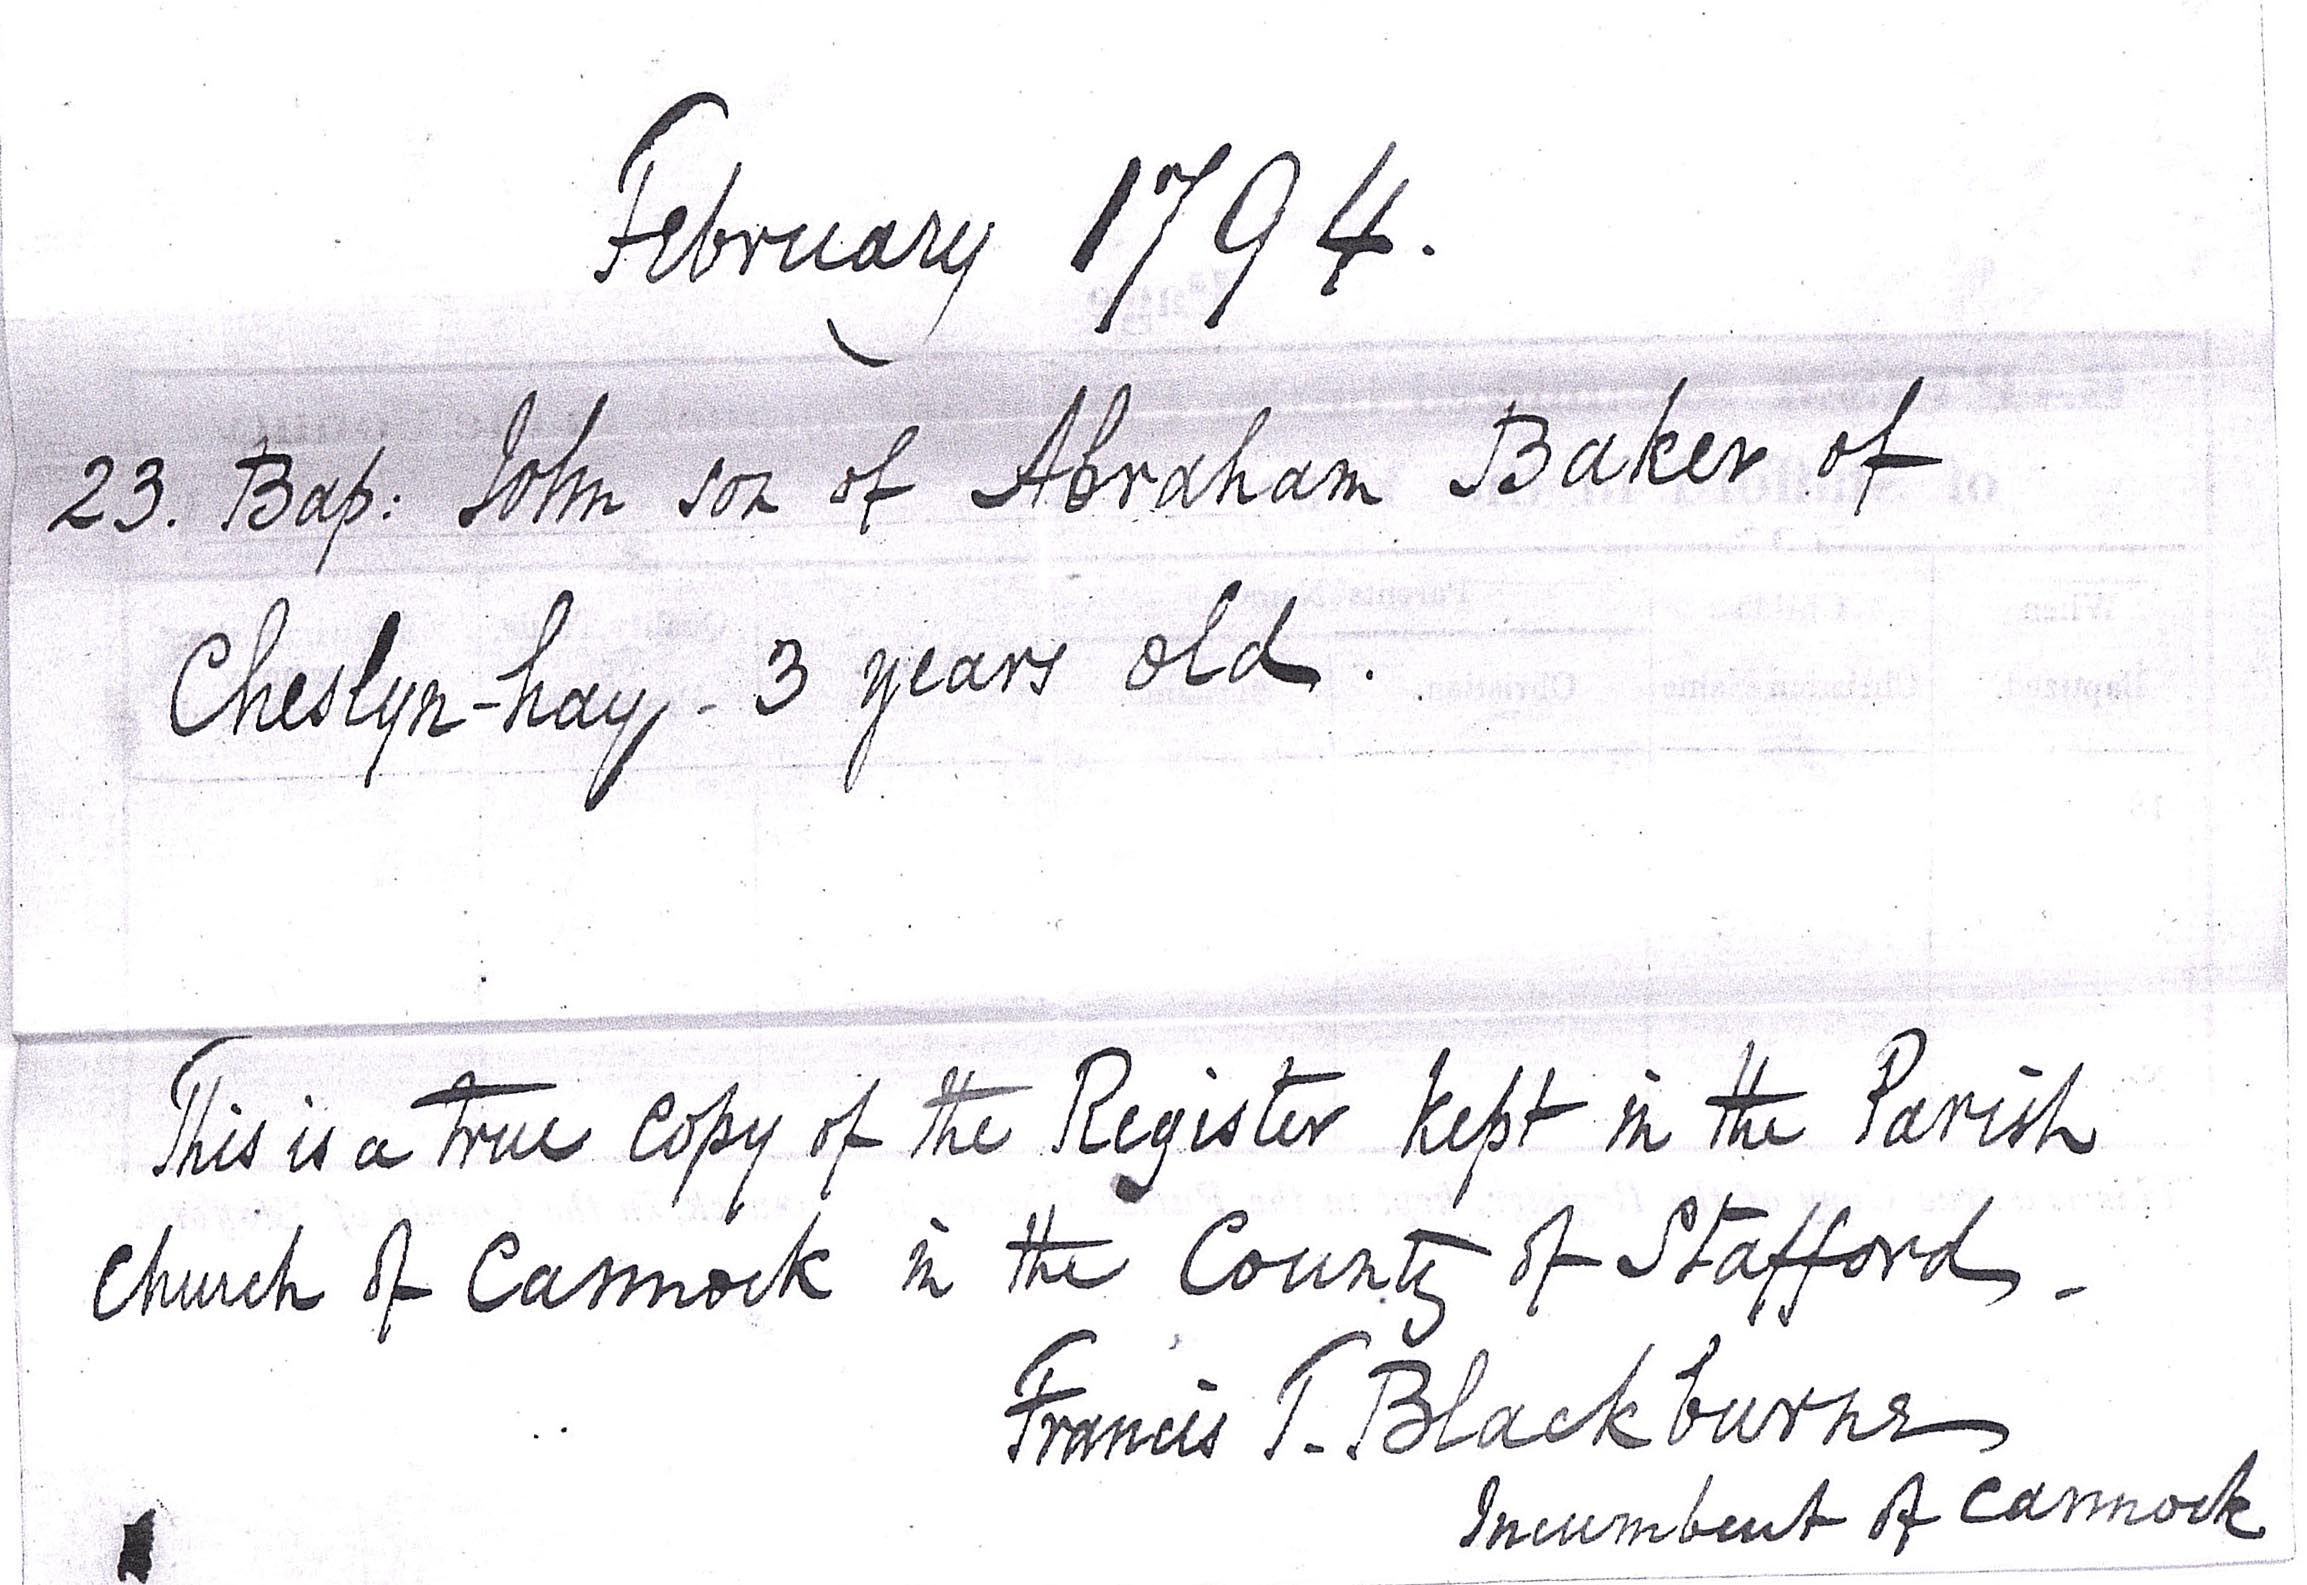 February 1794.
23. Bap: John son of Abraham Baker of
Cheslyn-hay - 3 years old.
This is a true copy of the Register kept in the Parish
Church of Cannock in the County of Stafford -
Francis T. Blackburne
Incumbent of Cannock